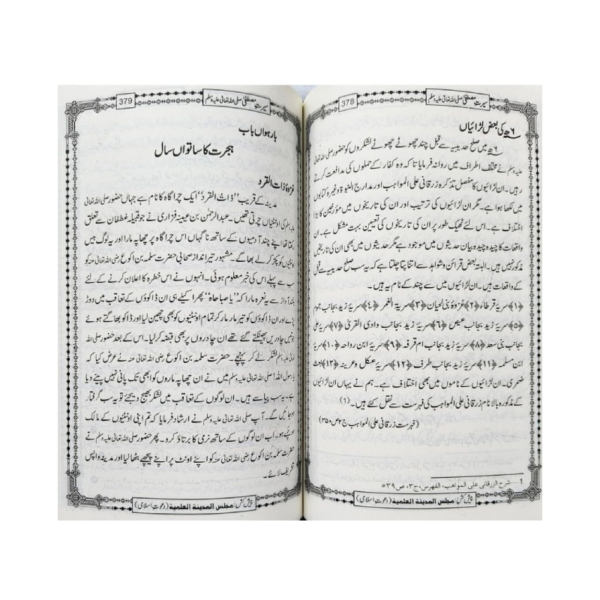 378
سیرتِ مصطفیٰ صلی اللہ تعالیٰ علیہ وسلم
۶ھ کی بعض لڑائیاں
۶ھ میں صلح حدیبیہ سے قبل چند چھوٹے چھوٹے لشکروں کو حضور صلی اللہ تعالیٰ
علیہ وسلم نے مختلف اطراف میں روانہ فرمایا تا کہ وہ کفار کے حملوں کی مدافعت کرتے
رہیں۔ ان لڑائیوں کا مفصل تذکرہ زرقانی علی المواہب اور مدارج النبوۃ وغیرہ کتابوں
میں لکھا ہوا ہے۔ مگر ان لڑائیوں کی ترتیب اور ان کی تاریخوں میں مؤرخین کا بڑا
اختلاف ہے۔ اس لئے ٹھیک طور پر ان کی تاریخوں کی تعیین بہت مشکل ہے۔ ان
واقعات کا چیدہ چیدہ بیان حدیثوں میں موجود ہے مگر حدیثوں میں بھی ان کی تاریخیں
مذکور نہیں ہیں۔ البتہ بعض قرائن و شواہد سے اتنا پتا چلتا ہے کہ یہ سب صلح حدیبیہ سے
قبل کے واقعات ہیں۔ ان لڑائیوں میں سے چند کے نام یہ ہیں۔
﴿۱﴾ سریۂ قرطاء ﴿۲﴾ غزوۂ بنی لحیان ﴿۳﴾ سریۃ الغمر ﴿۴﴾ سریۂ زید بجانب جموم
﴿۵﴾ سریۂ زید بجانب عیص ﴿۶﴾ سریۂ زید بجانب وادی القریٰ ﴿۷﴾ سریۂ علی
بجانب بنی سعد ﴿۸﴾ سریۂ زید بجانب ام قرفہ ﴿۹﴾ سریۂ ابن رواحہ ﴿۱۰﴾ سریۂ
ابن مسلمہ ﴿۱۱﴾ سریۂ زید بجانب طرف ﴿۱۲﴾ سریۂ عکل و عرینہ ﴿۱۳﴾ سریۂ
ضمری۔ ان لڑائیوں کے ناموں میں بھی اختلاف ہے۔ ہم نے یہاں ان لڑائیوں
کے مذکورہ بالا نام زرقانی علی المواہب کی فہرست سے نقل کئے ہیں۔ (۱)
(فہرست زرقانی علی المواہب ج۲ ص۳۵۰)
1 شرح الزرقانی علی المواهب، الفهرس، ج۳، ص۵۳۹
پیش کش: مجلس المدینة العلمیة (دعوتِ اسلامی)
379
سیرتِ مصطفیٰ صلی اللہ تعالیٰ علیہ وسلم
بارہواں باب
ہجرت کا ساتواں سال
غزوۂ ذات القرد
مدینہ کے قریب ”ذات القرد“ ایک چراگاہ کا نام ہے جہاں حضور صلی اللہ تعالیٰ
علیہ وسلم کی اونٹنیاں چرتی تھیں۔ عبدالرحمٰن بن عیینہ فزاری نے جو قبیلہ غطفان سے تعلق
رکھتا تھا اپنے چند آدمیوں کے ساتھ ناگہاں اس چراگاہ پر چھاپہ مارا اور یہ لوگ بیس
اونٹنیوں کو پکڑ کر لے بھاگے۔ مشہور تیر انداز صحابی حضرت سلمہ بن اکوع رضی اللہ تعالیٰ عنہ کو سب
سے پہلے اس کی خبر معلوم ہوئی۔ انہوں نے اس خطرہ کا اعلان کرنے کے لئے
بلند آواز سے یہ نعرہ مارا کہ ”یا صباحاہ“ پھر اکیلے ہی ان ڈاکوؤں کے تعاقب میں دوڑ
پڑے اور ان ڈاکوؤں کو تیر مار مار کر تمام اونٹنیوں کو بھی چھین لیا اور ڈاکو بھاگتے ہوئے
جو تیس چادریں پھینکتے گئے تھے ان چادروں پر بھی قبضہ کر لیا۔ اس کے بعد حضور صلی اللہ
تعالیٰ علیہ وسلم لشکر لے کر پہنچے۔ حضرت سلمہ بن اکوع رضی اللہ تعالیٰ عنہ نے عرض کیا کہ
یا رسول اللہ! صلی اللہ تعالیٰ علیہ وسلم میں نے ان چھاپہ ماروں کو ابھی تک پانی نہیں پینے دیا
ہے۔ یہ سب پیاسے ہیں۔ ان لوگوں کے تعاقب میں لشکر بھیج دیجئے تو یہ سب گرفتار
ہو جائیں گے۔ آپ صلی اللہ تعالیٰ علیہ وسلم نے ارشاد فرمایا کہ تم اپنی اونٹنیوں کے مالک
ہو چکے ہو۔ اب ان لوگوں کے ساتھ نرمی کا برتاؤ کرو۔ پھر حضور صلی اللہ تعالیٰ علیہ وسلم نے
حضرت سلمہ بن اکوع رضی اللہ تعالیٰ عنہ کو اپنے اونٹ پر اپنے پیچھے بٹھا لیا اور مدینہ واپس
تشریف لائے۔
پیش کش: مجلس المدینة العلمیة (دعوتِ اسلامی)